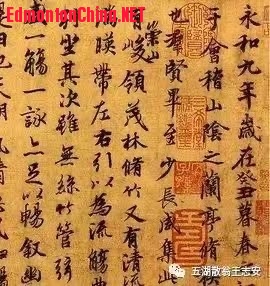 EdmontonChina.NET
永和九年歲在癸丑暮春三
于會稽山陰之蘭亭脩
也羣賢畢至少長咸集此
有崇山峻領茂林脩竹又有清流
暎帶左右引以為流觴曲
坐其次雖無絲竹管弦
一觴一詠亦足以暢敘幽
也天朗氣清
五湖散翁王志安